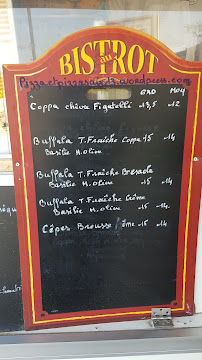 au
BISTROT
Pizzaetpizzaiolo.wordpress.com
GRD MOY
Coppa chèvre Figatelli 13,5 12
Buffala T. Fraîche Coppa 15 14
Basilic H. Olive
Buffala T. Fraîche Bresaola
Basilic H. Olive 15 14
Buffala T. Fraîche Crème
Basilic H. Olive 15 14
Cèpes Brousse / ème 15 14